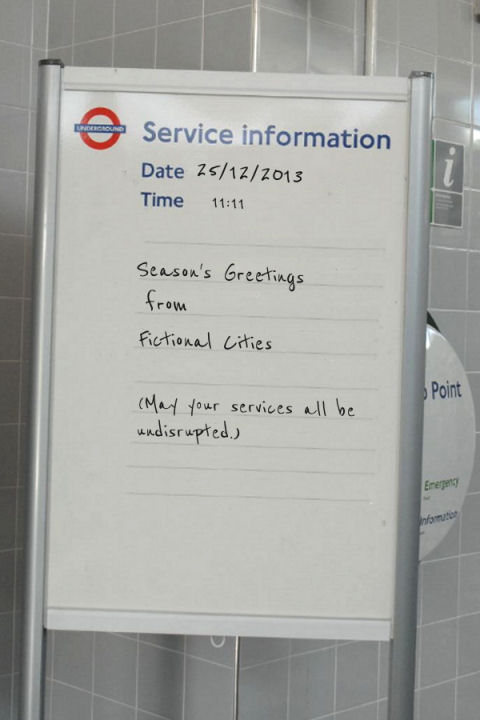 UNDERGROUND
Service information
Date 25/12/2013
Time 11:11
Season's Greetings
from
Fictional Cities
(May your services all be
undisrupted.)
i
Point
Emergency
Information